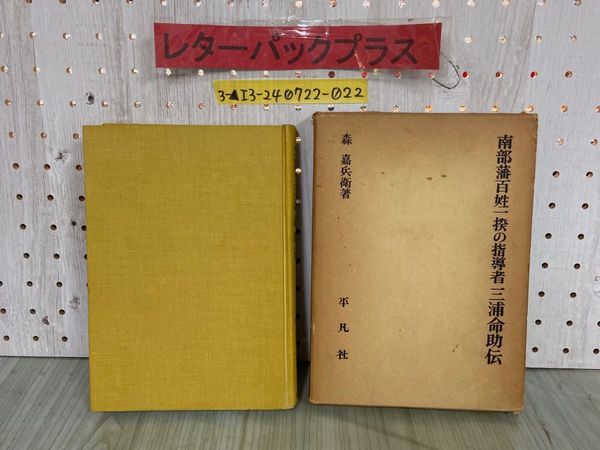 レターパックプラス
3-▲I3-240722-022
南部藩百姓一揆の指導者 三浦命助伝
森 嘉兵衛著
平凡社